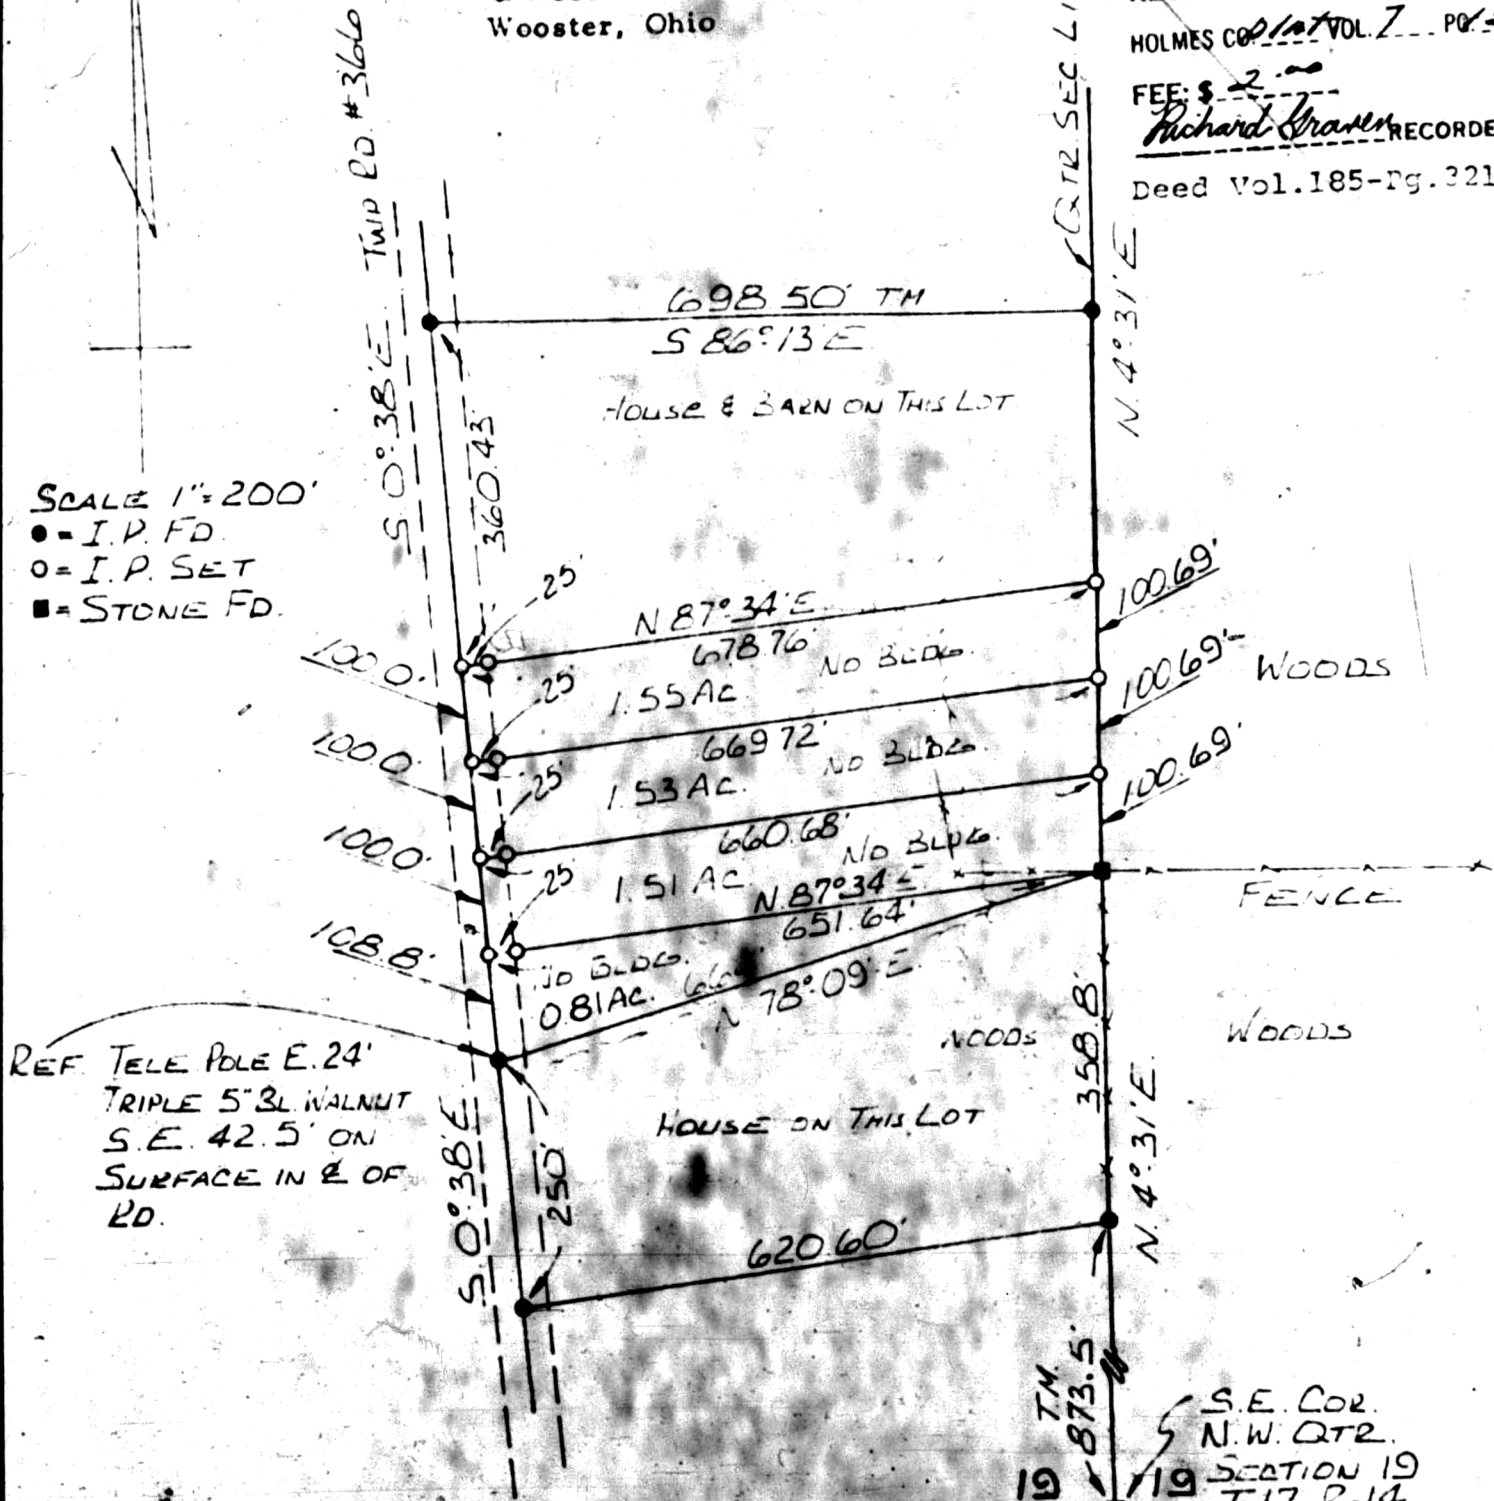 Wooster, Ohio
HOLMES CO. Plat VOL. 7 PG.
FEE: $ 2.00
Richard Graven RECORDE
Deed Vol.185-Pg.321
TWP RD. #366
QTR. SEC. LI
S 0° 38' E.
N. 4° 31' E.
698.50' TM
S 86° 13' E.
HOUSE & BARN ON THIS LOT
360.43'
SCALE 1" = 200'
● = I.P. FD.
○ = I.P. SET
■ = STONE FD.
25'
N 87° 34' E.
678.76'
NO BLDG.
100.0'
100.69'
25'
1.55 AC.
669.72'
NO BLDG.
100.0'
100.69'
WOODS
25'
1.53 AC.
660.68'
NO BLDG.
100.0'
100.69'
25'
1.51 AC.
N. 87° 34' E.
651.64'
FENCE
108.8'
NO BLDG.
0.81 AC.
N 78° 09' E.
WOODS
358.8'
WOODS
REF. TELE POLE E. 24'
TRIPLE 5" BL. WALNUT
S.E. 42.5' ON
SURFACE IN ℄ OF
RD.
HOUSE ON THIS LOT
S. 0° 38' E.
250'
N. 4° 31' E.
620.60'
T.M.
873.5'
S.E. COR.
N.W. QTR.
SECTION 19
T-17 R-14
19
19